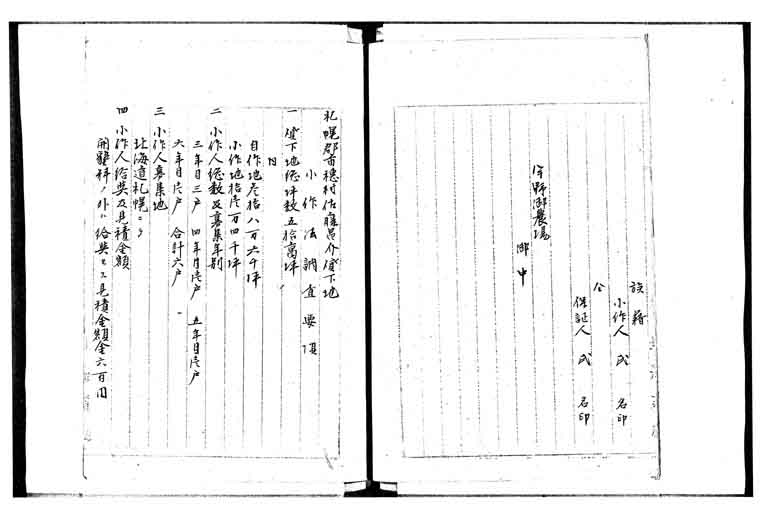 族籍
小作人 氏 名印
仝
保証人 氏 名印
今野農場
御中
札幌郡苗穂村佐藤昌介貸下地
小作法調査要項
一 貸下地総坪数五拾萬坪
内
自作地参拾八万六千坪
小作地拾壱万四千坪
二 小作人総数及募集年別
三年目三戸 四年目壱戸 五年目壱戸
六年目壱戸 合計六戸
三 小作人募集地
北海道札幌ニテ
四 小作人給與及見積金額
開墾料ノ外ハ給與セス見積金額金六百円